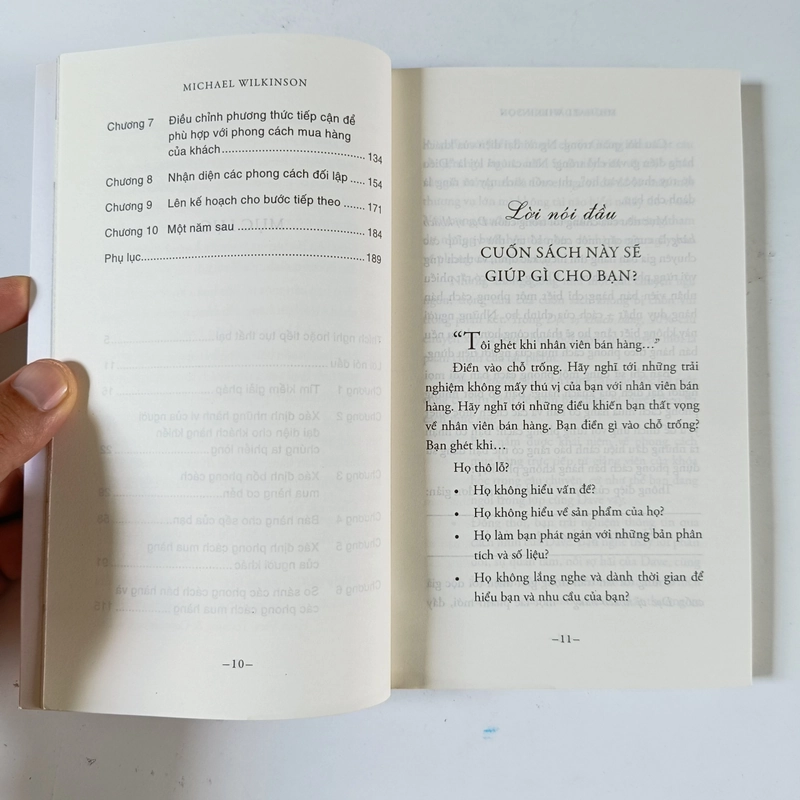 MICHAEL WILKINSON
Chương 7 Điều chỉnh phương thức tiếp cận để
phù hợp với phong cách mua hàng
của khách 134
Chương 8 Nhận diện các phong cách đối lập 154
Chương 9 Lên kế hoạch cho bước tiếp theo 171
Chương 10 Một năm sau 184
Phụ lục 189
–10–
Lời nói đầu
CUỐN SÁCH NÀY SẼ
GIÚP GÌ CHO BẠN?
“Tôi ghét khi nhân viên bán hàng…”
Điền vào chỗ trống. Hãy nghĩ tới những trải
nghiệm không mấy thú vị của bạn với nhân viên bán
hàng. Hãy nghĩ tới những điều khiến bạn thất vọng
về nhân viên bán hàng. Bạn điền gì vào chỗ trống?
Bạn ghét khi…
Họ thô lỗ?
• Họ không hiểu vấn đề?
• Họ không hiểu về sản phẩm của họ?
• Họ làm bạn phát ngán với những bản phân
tích và số liệu?
• Họ không lắng nghe và dành thời gian để
hiểu bạn và nhu cầu của bạn?
–11–